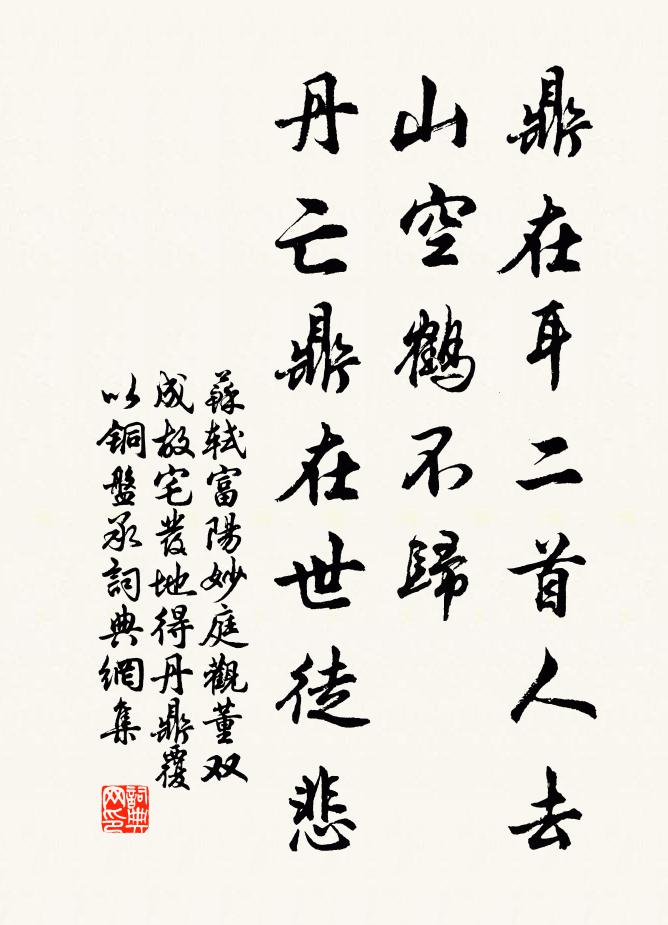 鼎在耳二首人去
山空鶴不歸
丹亡鼎在世徒悲
蘇軾富陽妙庭觀董双
成故宅發地得丹鼎覆
以銅盤承詞典網集
詞典
网印